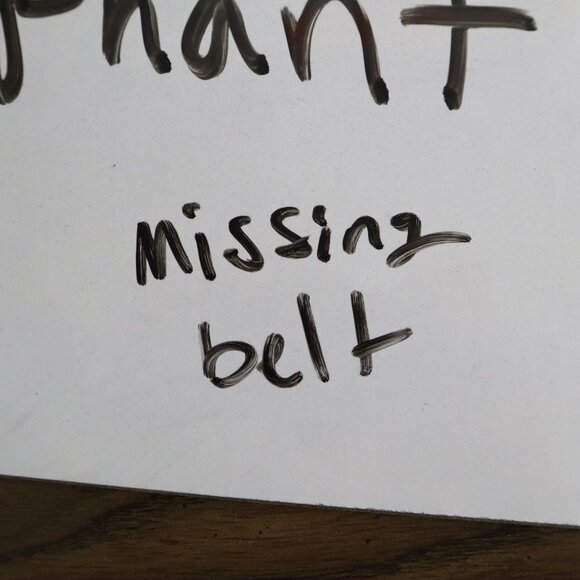 phant
Missing
belt